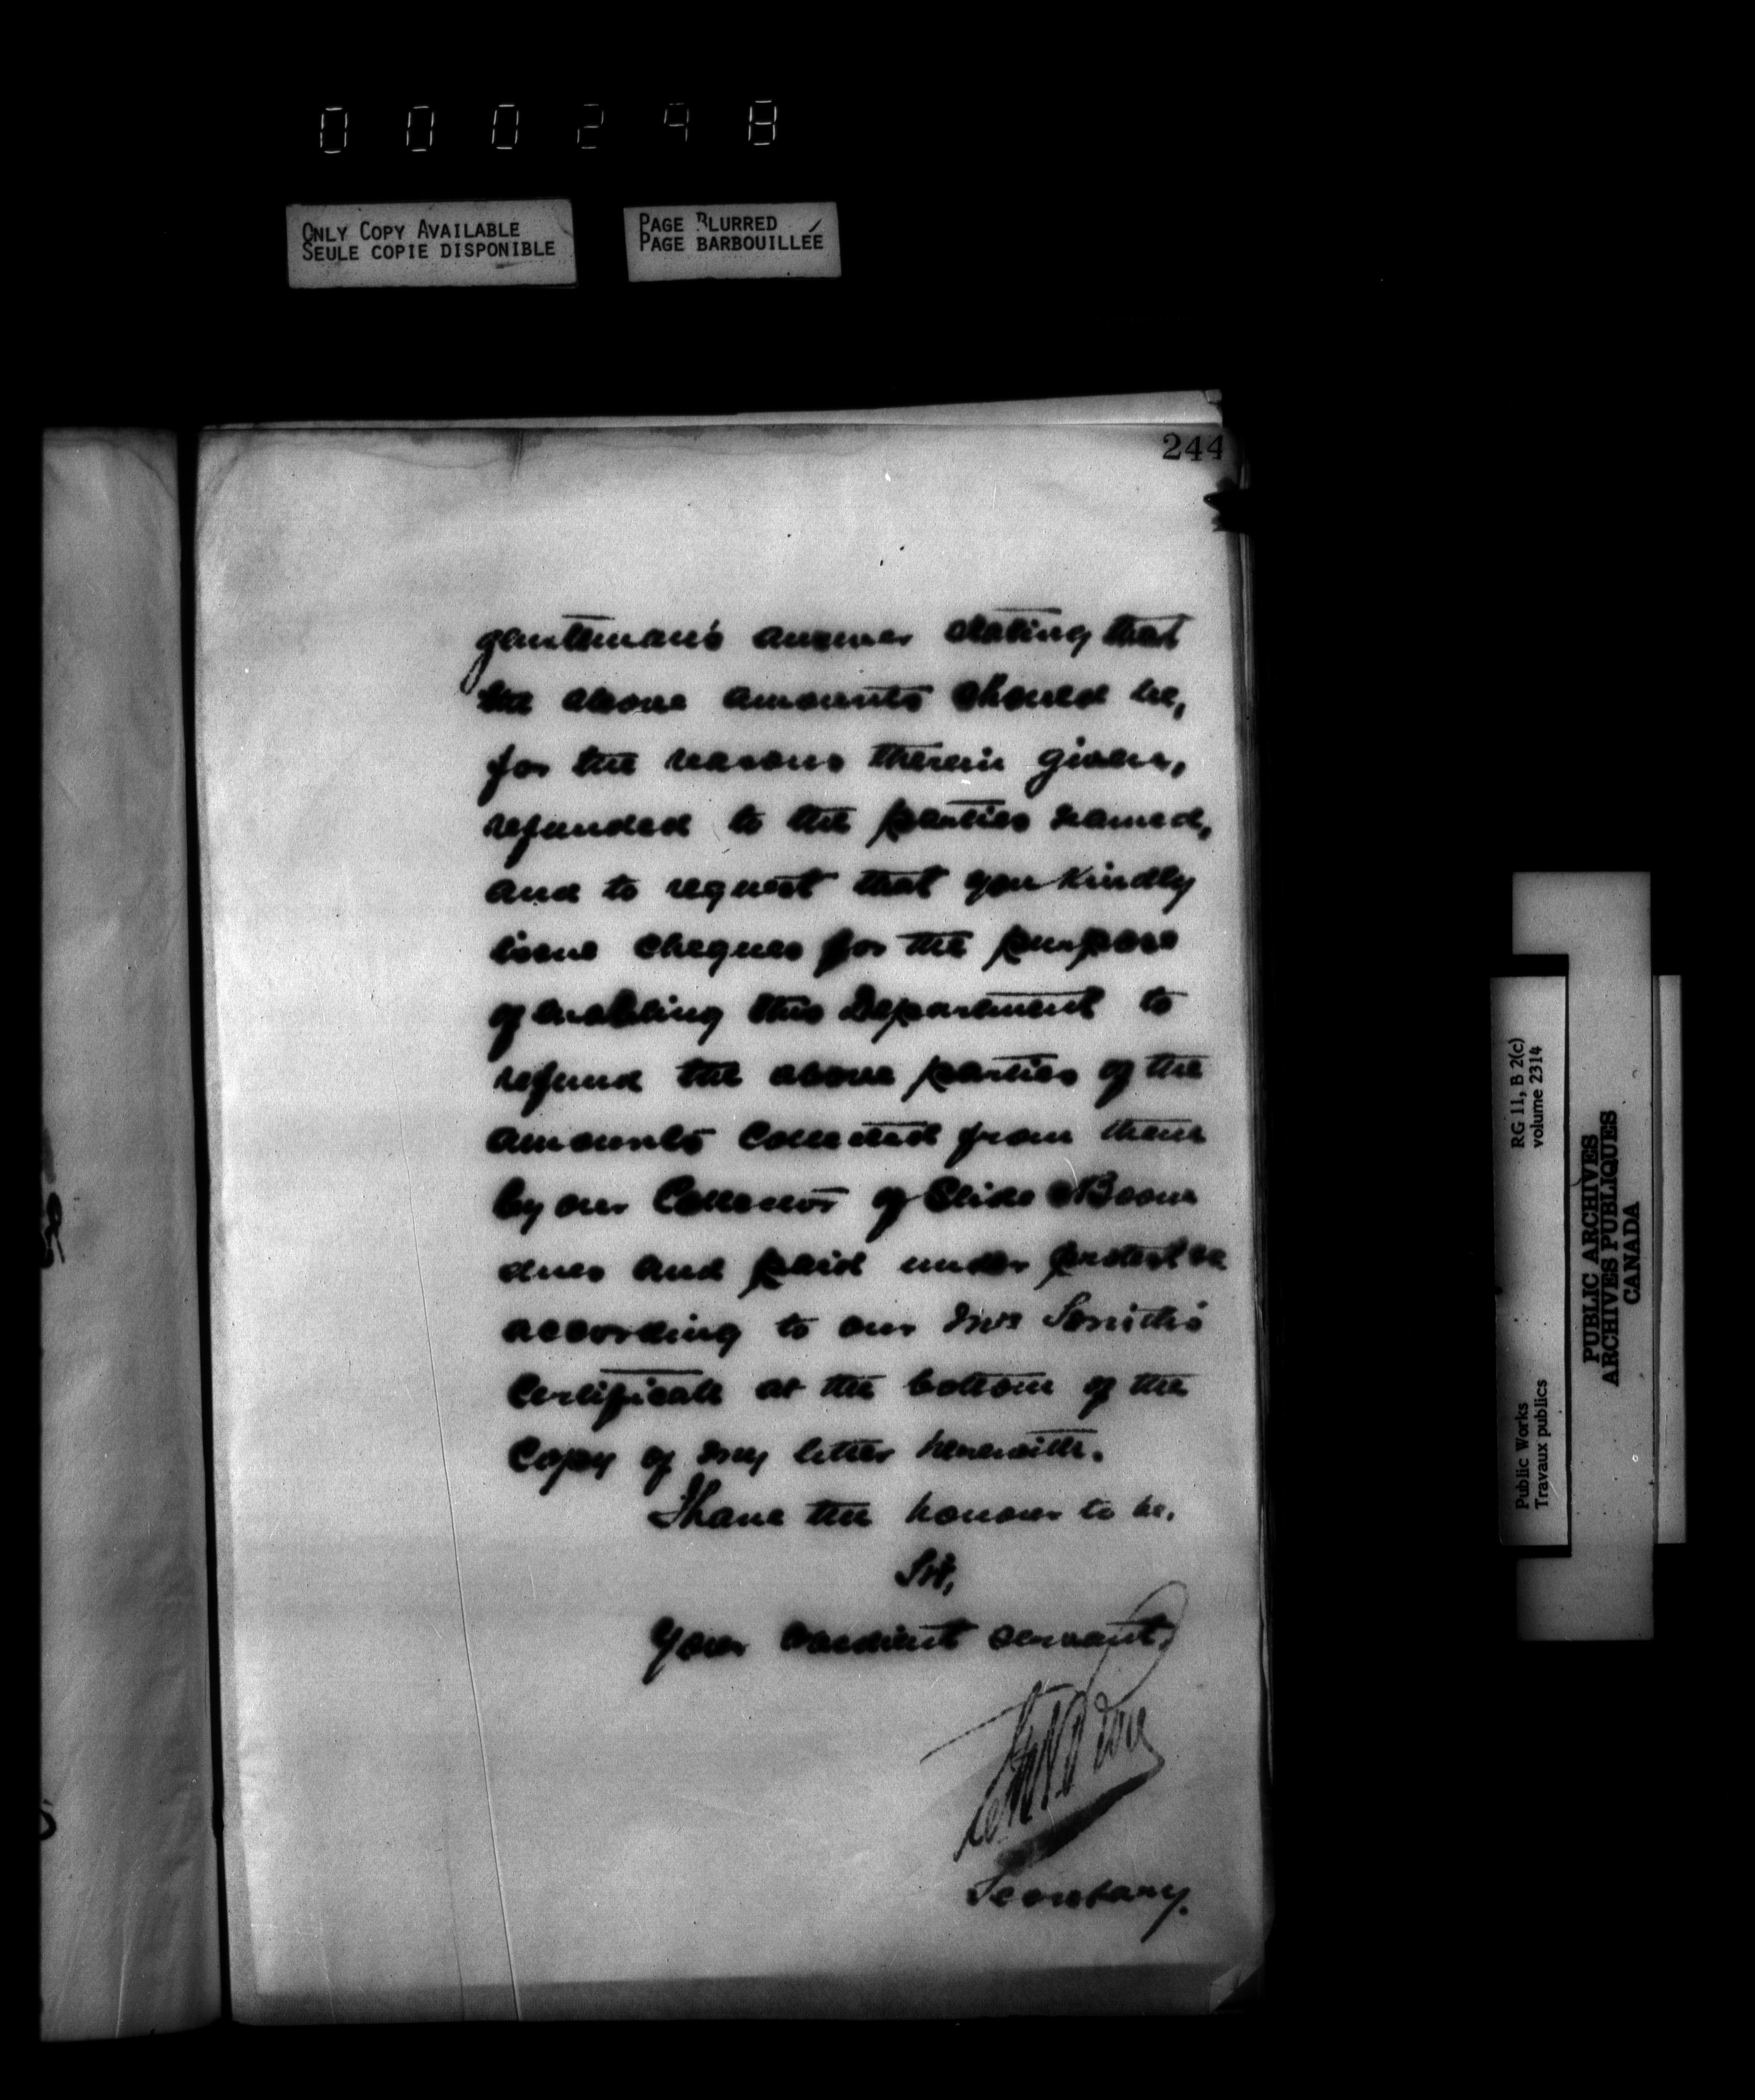 000298
ONLY COPY AVAILABLE
SEULE COPIE DISPONIBLE
PAGE BLURRED
PAGE BARBOUILLÉE
244
gentleman's answer stating that
the above amounts should be,
for the reasons therein given,
refunded to the parties named,
and to request that you kindly
issue cheques for the purpose
of enabling this Department to
refund the above parties of the
amounts collected from them
by our Collector of Slide & Boom
dues and paid under protest
according to our Smith's
Certificate at the bottom of the
Copy of my letter herewith.
I have the honour to be,
Sir,
Your obedient servant,
Secretary.
RG 11, B 2(c)
volume 2314
Public Works
Travaux publics
PUBLIC ARCHIVES
ARCHIVES PUBLIQUES
CANADA